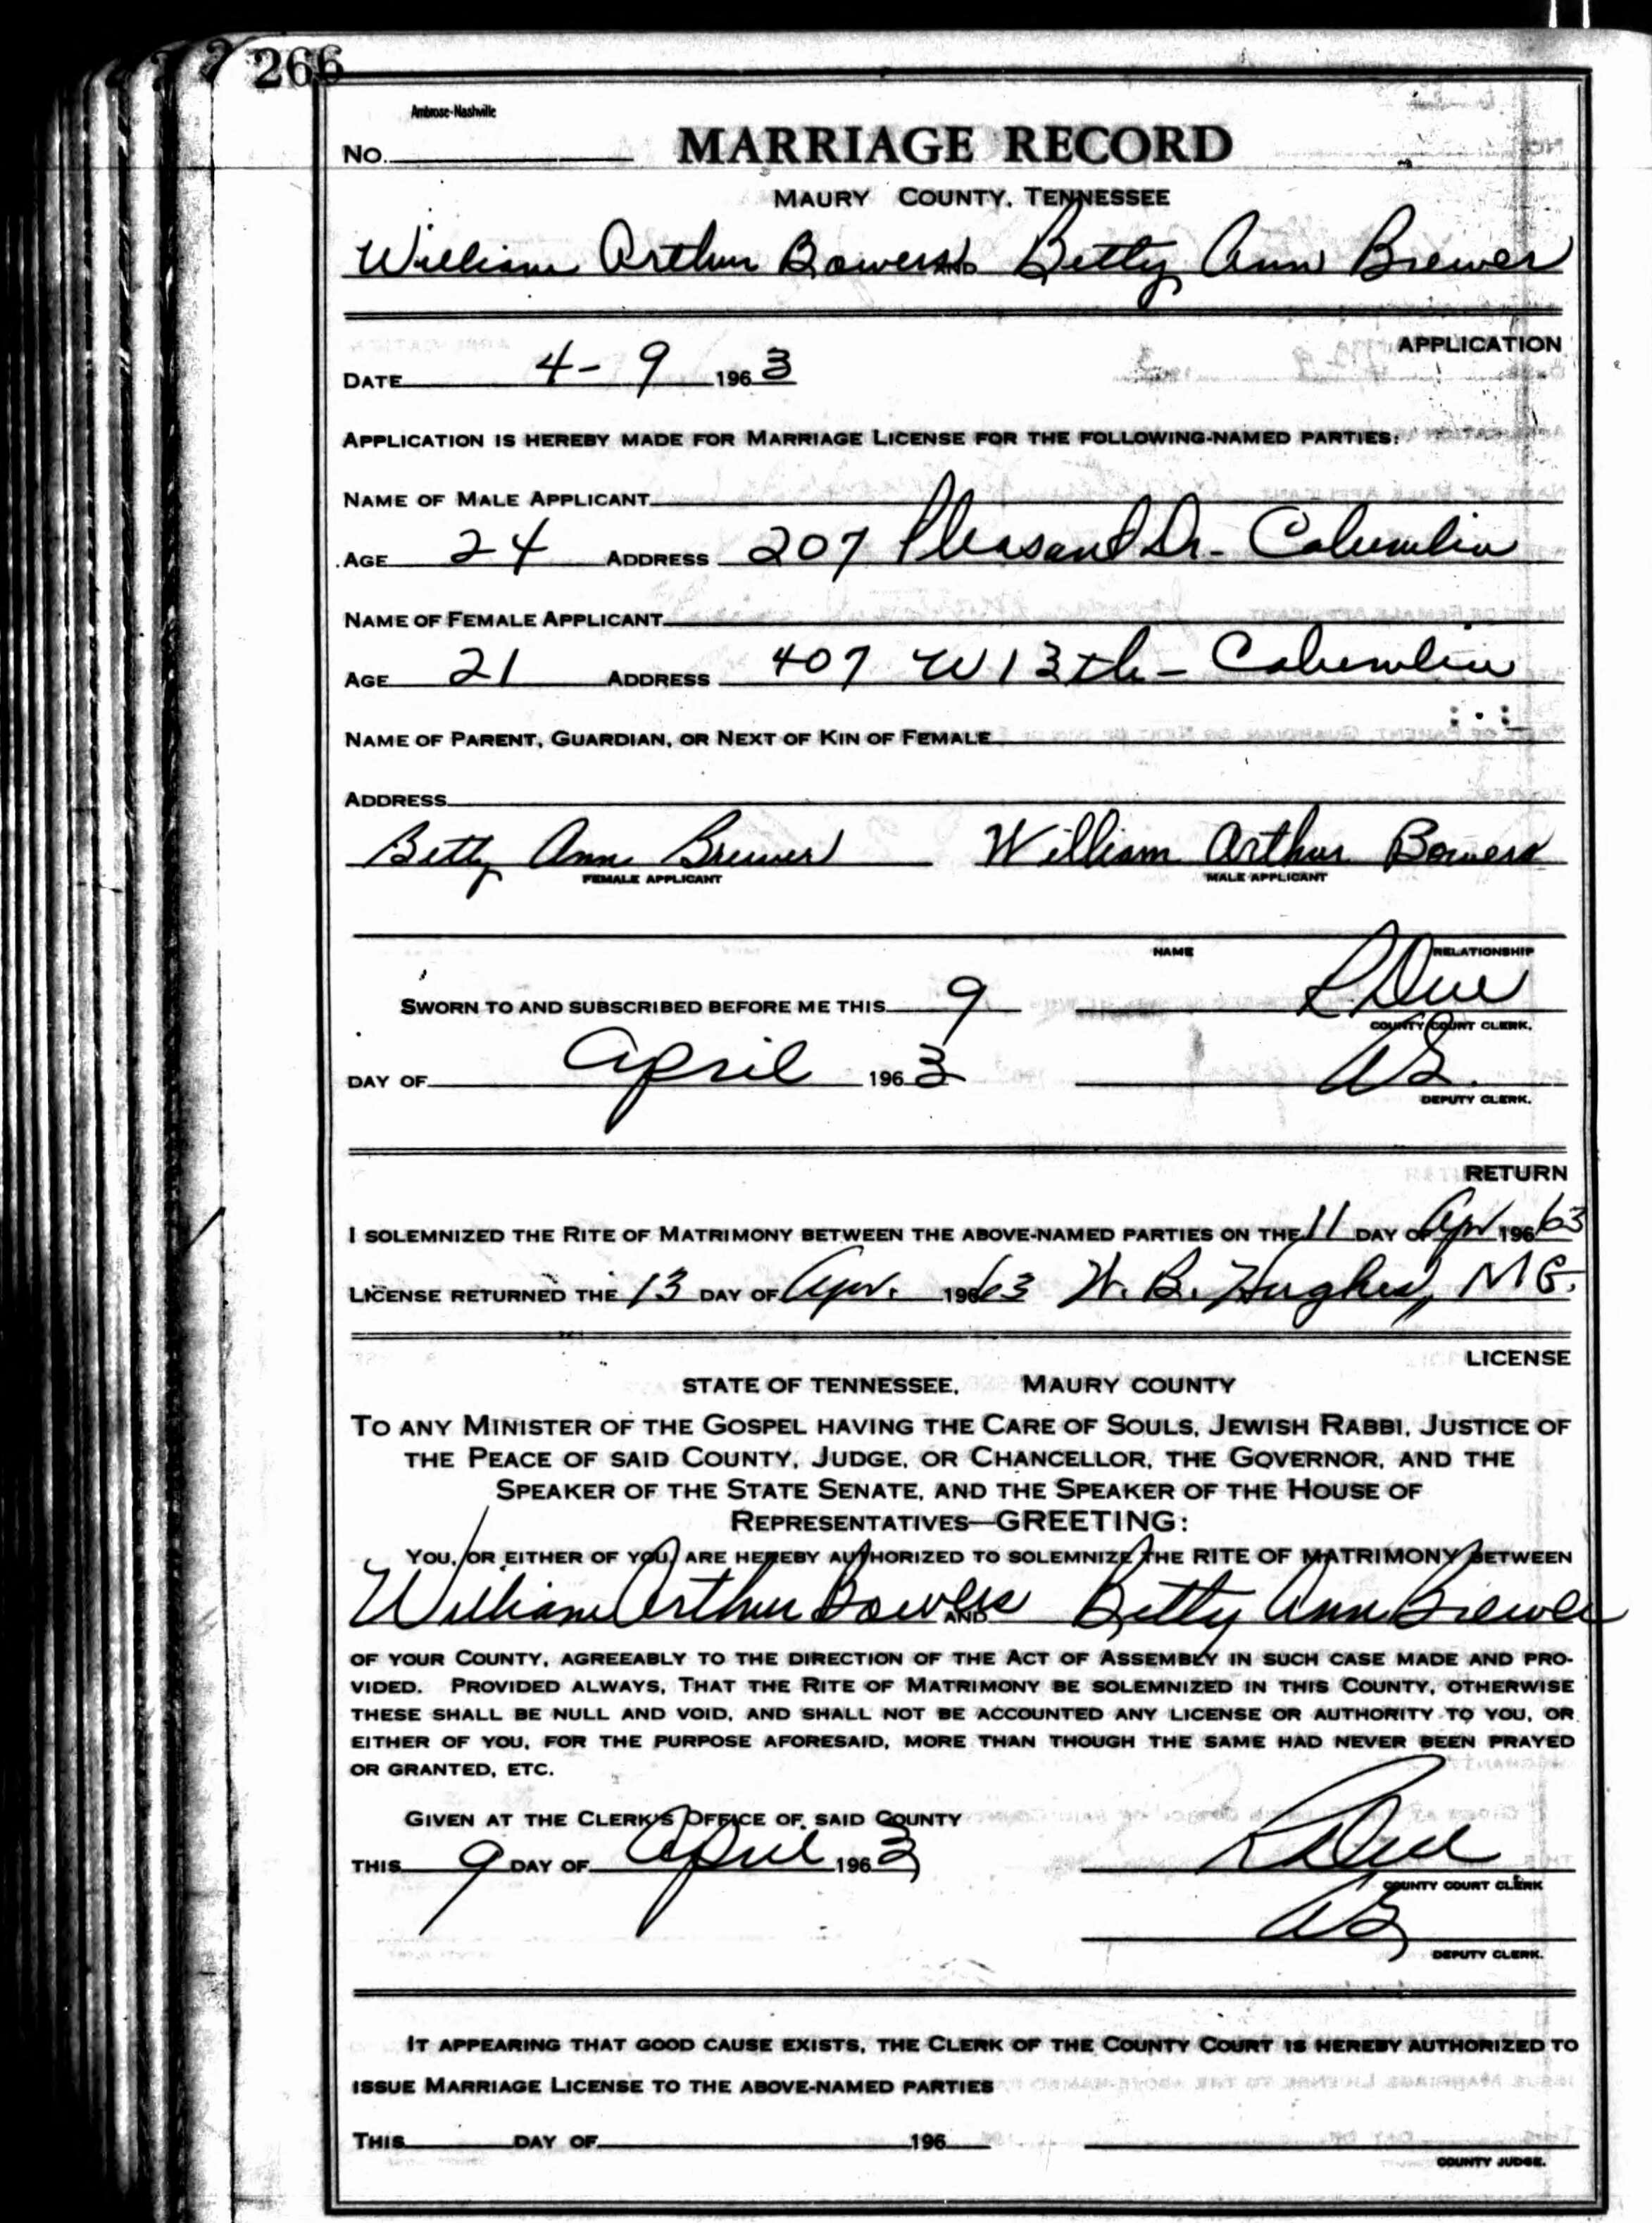 266
Ambrose-Nashville
No. MARRIAGE RECORD
MAURY COUNTY, TENNESSEE
William Arthur Bowers AND Betty Ann Brewer
APPLICATION
DATE 4-9 1963
APPLICATION IS HEREBY MADE FOR MARRIAGE LICENSE FOR THE FOLLOWING-NAMED PARTIES:
NAME OF MALE APPLICANT
AGE 24 ADDRESS 207 Pleasant Dr - Columbia
NAME OF FEMALE APPLICANT
AGE 21 ADDRESS 407 W 13th - Columbia
NAME OF PARENT, GUARDIAN, OR NEXT OF KIN OF FEMALE
ADDRESS
Betty Ann Brewer William Arthur Bowers
FEMALE APPLICANT MALE APPLICANT
NAME RELATIONSHIP
SWORN TO AND SUBSCRIBED BEFORE ME THIS 9
COUNTY COURT CLERK.
DAY OF April 1963
DEPUTY CLERK.
RETURN
I SOLEMNIZED THE RITE OF MATRIMONY BETWEEN THE ABOVE-NAMED PARTIES ON THE 11 DAY OF Apr 196 63
LICENSE RETURNED THE 13 DAY OF Apr. 196 63 W. B. Hughes, M G.
LICENSE
STATE OF TENNESSEE, MAURY COUNTY
TO ANY MINISTER OF THE GOSPEL HAVING THE CARE OF SOULS, JEWISH RABBI, JUSTICE OF
THE PEACE OF SAID COUNTY, JUDGE, OR CHANCELLOR, THE GOVERNOR, AND THE
SPEAKER OF THE STATE SENATE, AND THE SPEAKER OF THE HOUSE OF
REPRESENTATIVES—GREETING:
YOU, OR EITHER OF YOU, ARE HEREBY AUTHORIZED TO SOLEMNIZE THE RITE OF MATRIMONY BETWEEN
William Arthur Bowers AND Betty Ann Brewer
OF YOUR COUNTY, AGREEABLY TO THE DIRECTION OF THE ACT OF ASSEMBLY IN SUCH CASE MADE AND PRO-
VIDED. PROVIDED ALWAYS, THAT THE RITE OF MATRIMONY BE SOLEMNIZED IN THIS COUNTY, OTHERWISE
THESE SHALL BE NULL AND VOID, AND SHALL NOT BE ACCOUNTED ANY LICENSE OR AUTHORITY TO YOU, OR
EITHER OF YOU, FOR THE PURPOSE AFORESAID, MORE THAN THOUGH THE SAME HAD NEVER BEEN PRAYED
OR GRANTED, ETC.
GIVEN AT THE CLERK'S OFFICE OF SAID COUNTY
THIS 9 DAY OF April 1963
COUNTY COURT CLERK
DEPUTY CLERK.
IT APPEARING THAT GOOD CAUSE EXISTS, THE CLERK OF THE COUNTY COURT IS HEREBY AUTHORIZED TO
ISSUE MARRIAGE LICENSE TO THE ABOVE-NAMED PARTIES
THIS DAY OF 196
COUNTY JUDGE.